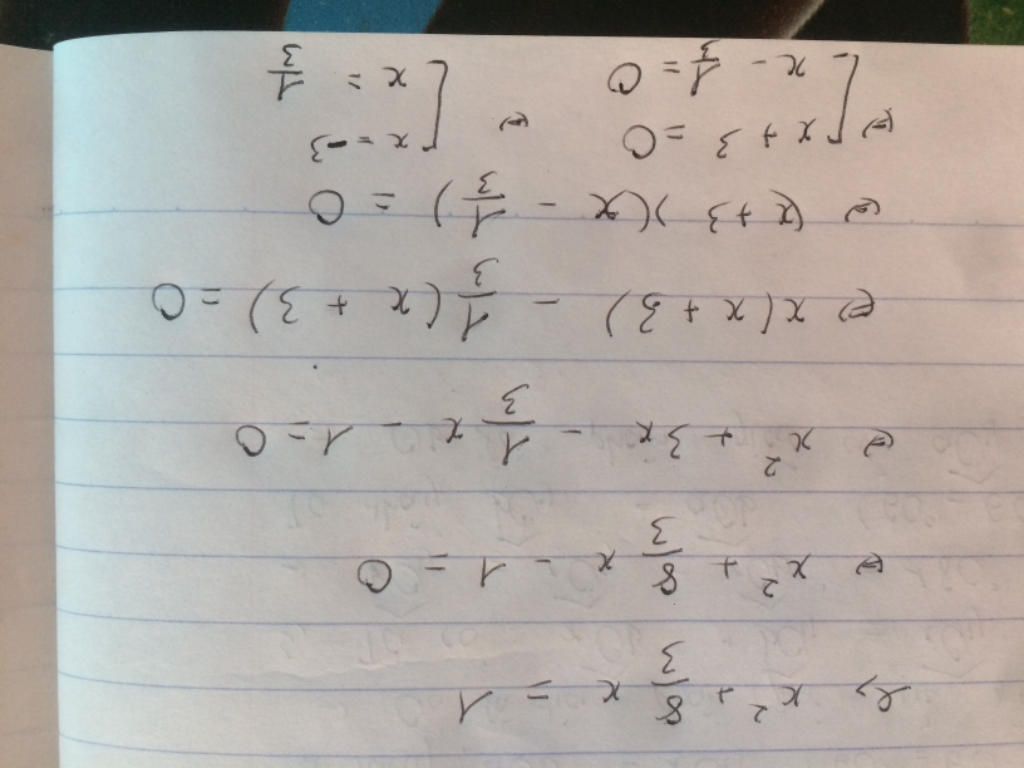 b, x² + 8/3 x = 1
⇔ x² + 8/3 x - 1 = 0
⇔ x² + 3x - 1/3 x - 1 = 0
⇔ x(x + 3) - 1/3 (x + 3) = 0
⇔ (x + 3)(x - 1/3) = 0
⇔ [ x + 3 = 0 ⇔ [ x = -3
x - 1/3 = 0 x = 1/3